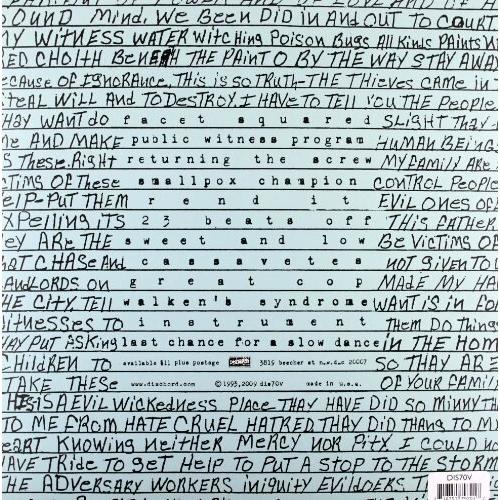 OUND MIND, WE BEEN DID IN AND OUT TO COURT
WITNESS WATER WITCHING POISON BUGS ALL KINDS PAINTS
BENEATH THE PAINT O BY THE WAY STAY AWAY
ECAUSE OF IGNORANCE, THIS IS SO TRUTH-THE THIEVES CAME IN
TEAL WILL AND TO DESTROY. I HAVE TO TELL YOU THE PEOPLE
THAY WANT DO facet squared SLIGHT THAY
ME AND MAKE public witness program HUMAN BEING
S THESE. RIGHT returning the screw MY FAMILY ARE
CTIMS OF THESE smallpox champion CONTROL PEOPLE
ELP-PUT THEM rend it EVIL ONES OF
XPELLING ITS 23 beats off THIS FATHER
EY ARE THE sweet and low BE VICTIMS OF
HAT CHASE AND cassavetes NOT GIVEN TO
ANDLORDS ON great cop MADE MY HA
THE CITY, TELL walken's syndrome WANT IS IN FO
ITNESSES TO instrument THEM DO THINGS
WAY PUT ASKING last chance for a slow dance IN THE HOM
CHILDREN TO available $11 plus postage 3819 beecher st n.w.d.c 20007 SO THAY ARE
TAKE THESE www.dischord.com © 1993, 2009 dis70V made in u.s.a. OF YOUR FAMIL
THIS IS A EVIL WICKEDNESS PLACE THAY HAVE DID SO MINNY THA
TO ME FROM HATE CRUEL HATRED THAY DID THANG TO M
EART KNOWING NEITHER MERCY NOR PITY I COULD NO
AVE TRIDE TO GET HELP TO PUT A STOP TO THE STORM
THE ADVERSARY WORKERS INIQUITY EVILDOERS
DIS70V